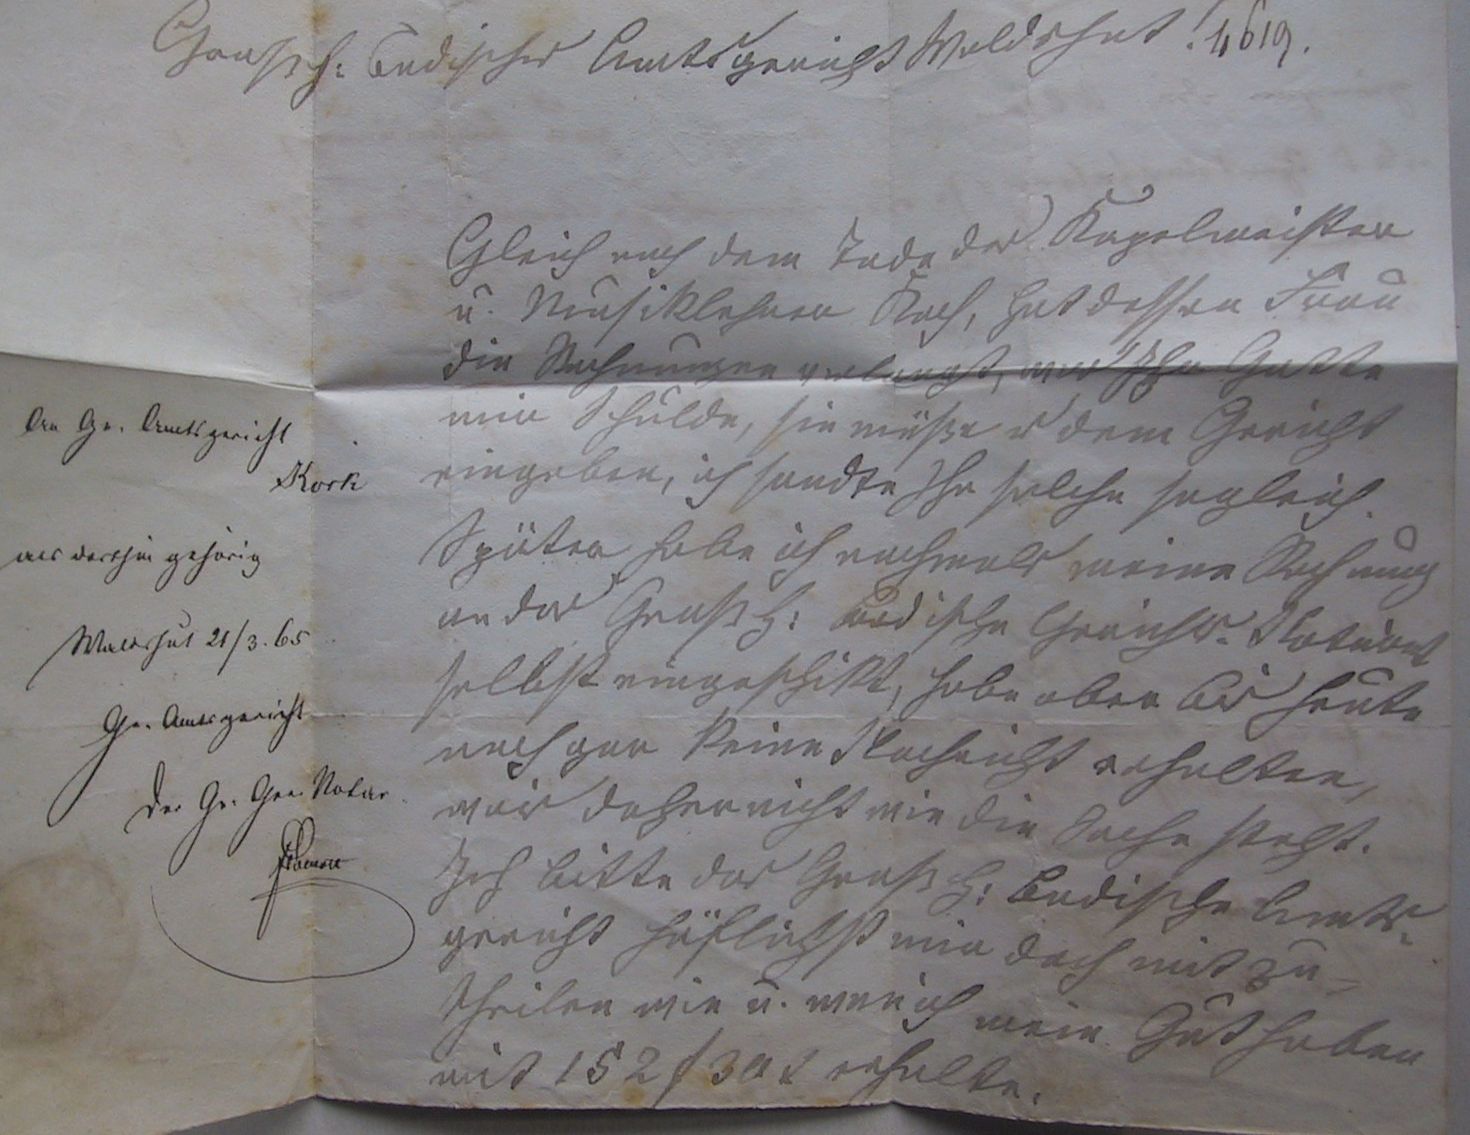 Großh: Badisches Amtsgericht Waldshut! 4619.
Gleich nach dem Tode des Kapelmeister
u. Musiklehrer Koch, hat dessen Frau
die Rechnungen verlangt, was Ihr Gatte
mir Schulde, sie müße es dem Gericht
eingeben, ich sandte Ihr solche sogleich.
Später habe ich nochmals meine Rechnung
an das Großh: Badische Gerichts-Notariat
selbst eingeschikt, habe aber bis heute
noch gar keine Nachricht erhalten,
weis daher nicht wie die Sache steht.
Ich bitte das Großh: Badische Amts-
gericht höflichst mir doch mitzu-
theilen wie u. wan ich mein Guthaben
mit 152 f 30 x erhalte.
An Gr. Amtsgericht
Kork
als dorthin gehörig
Waldshut 21/3. 65
Gr. Amtsgericht
Der Gr. Ger. Notar